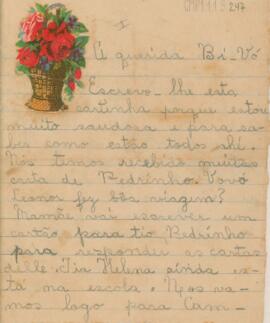 I
CMM 1.1.8 247
Á querida Bi-Vó
Escrevo-lhe esta
cartinha porque estou
muito saudosa e para sa-
ber como estão todos ahi.
Nós temos recebido muitas
carta de Pedrinho. Vovó
Leonor fez bôa viagem?
Mamãe vai escrever um
cartão para tio Pedrinho
para responder as cartas
delle. Tia Helena ainda es-
tá na escola. Nos va-
mos logo para Cam-